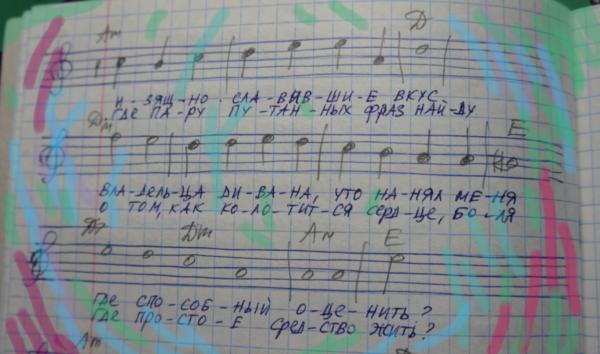 Am D
И-ЗЯЩ-НО СЛА-ВЯВ-ШИ-Е ВКУС
ГДЕ ПА-РУ ПУ-ТАН-НЫХ ФРАЗ НАЙ-ДУ
Dm E
ВЛА-ДЕЛЬ-ЦА ДИ-ВА-НА, ЧТО НА-НЯЛ МЕ-НЯ
О ТОМ, КАК КО-ЛО-ТИТ-СЯ СЕРД-ЦЕ, БО-ЛЯ
Dm Am E
ГДЕ СПО-СОБ-НЫЙ О-ЦЕ-НИТЬ?
ГДЕ ПРО-СТО-Е СРЕД-СТВО ЖИТЬ?
Am